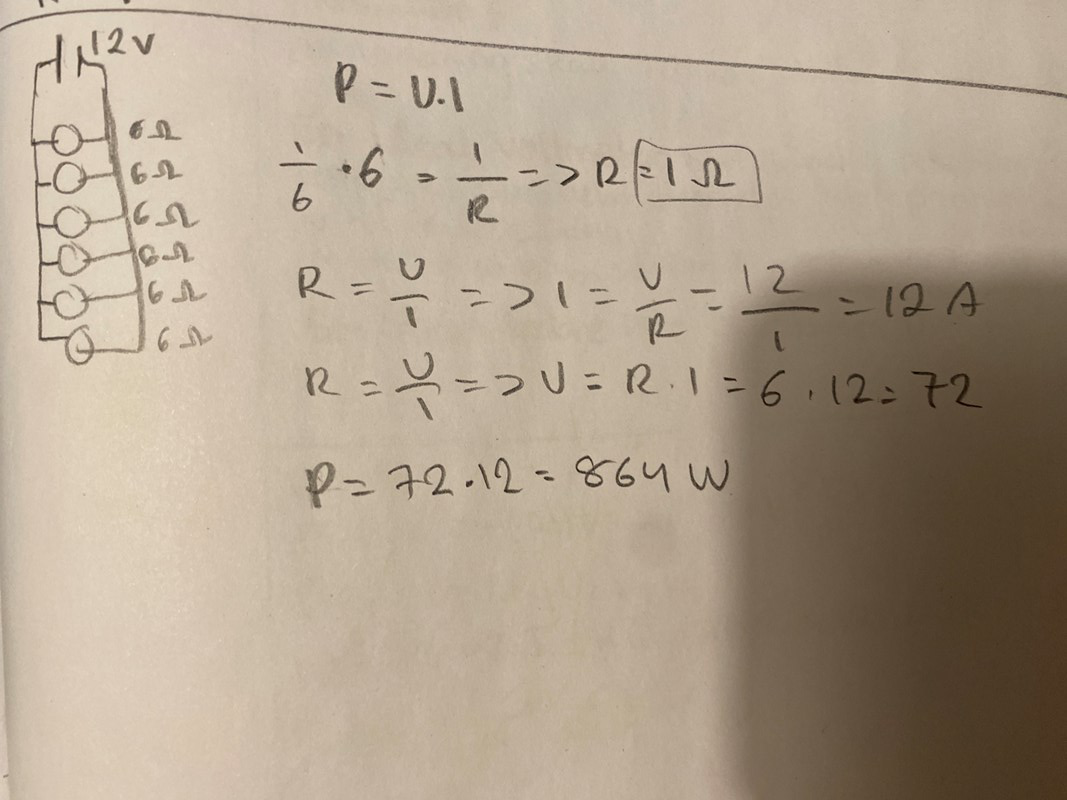 12V
6Ω
6Ω
6Ω
6Ω
6Ω
6Ω
P = U.I
1/6 · 6 = 1/R => R = 1 Ω
R = U/I => I = U/R = 12/1 = 12 A
R = U/I => U = R . I = 6 . 12 = 72
P = 72.12 = 864 W